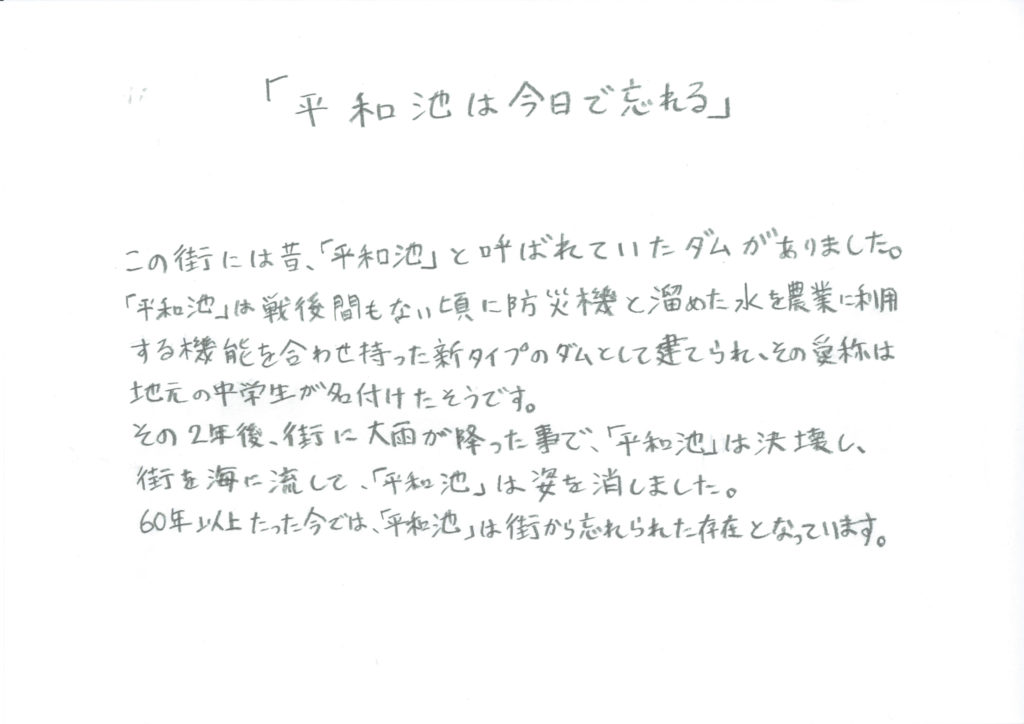 「平和池は今日で忘れる」
この街には昔、「平和池」と呼ばれていたダムがありました。
「平和池」は戦後間もない頃に防災機と溜めた水を農業に利用
する機能を合わせ持った新タイプのダムとして建てられ、その愛称は
地元の中学生が名付けたそうです。
その2年後、街に大雨が降った事で、「平和池」は決壊し、
街を海に流して、「平和池」は姿を消しました。
60年以上たった今では、「平和池」は街から忘れられた存在となっています。